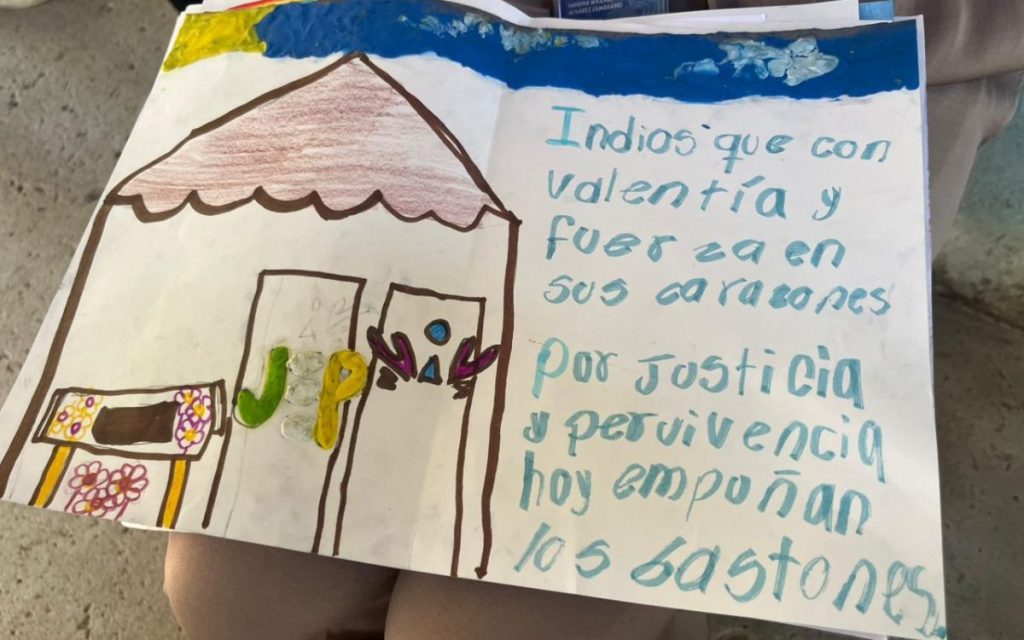 JEP
Indios que con
valentía y
fuer za en
sus carazones
Por Justicia
y pervivencia
hoy empuñan
los bastones.